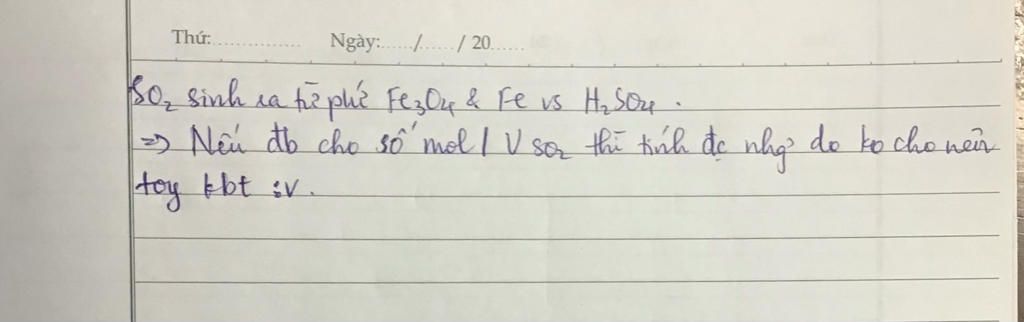 Thứ:............... Ngày:....../....../ 20......
SO₂ sinh ra từ pứ Fe₃O₄ & Fe vs H₂SO₄.
=> Nếu đb cho số mol / V SO₂ thì tính đc nhg do ko cho nên
toy kbt :v.